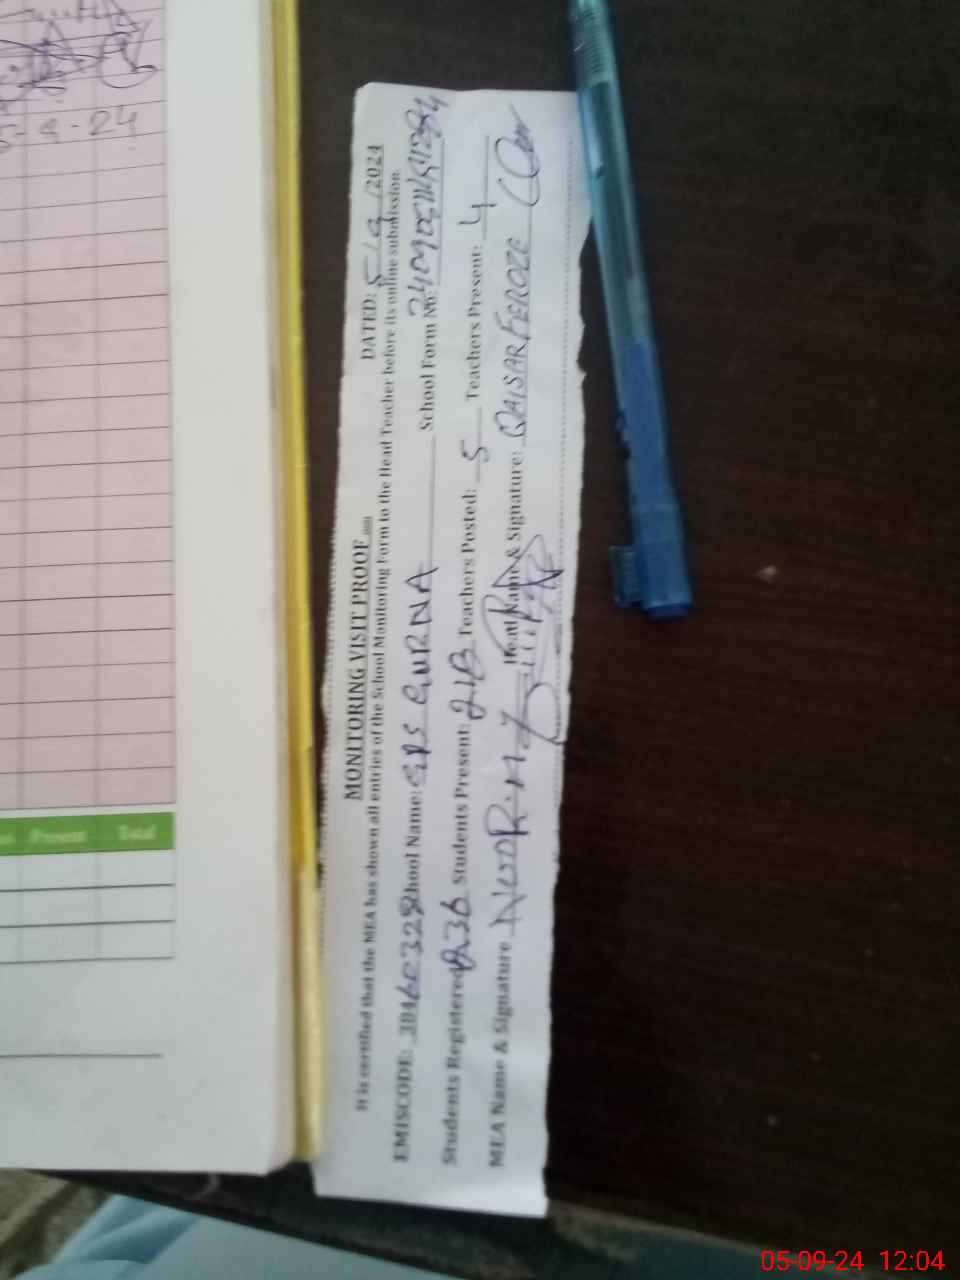 5-9-24
Present Total
MONITORING VISIT PROOF
DATED: 5/9/2024
It is certified that the MEA has shown all entries of the School Monitoring Form to the Head Teacher before its online submission.
EMISCODE: School Name: GPS GURNA School Form No:
Students Registered 236 Students Present: 218 Teachers Posted: 5 Teachers Present: 4
MEA Name & Signature Head Name & Signature: QAISAR FEROZE
05-09-24 12:04